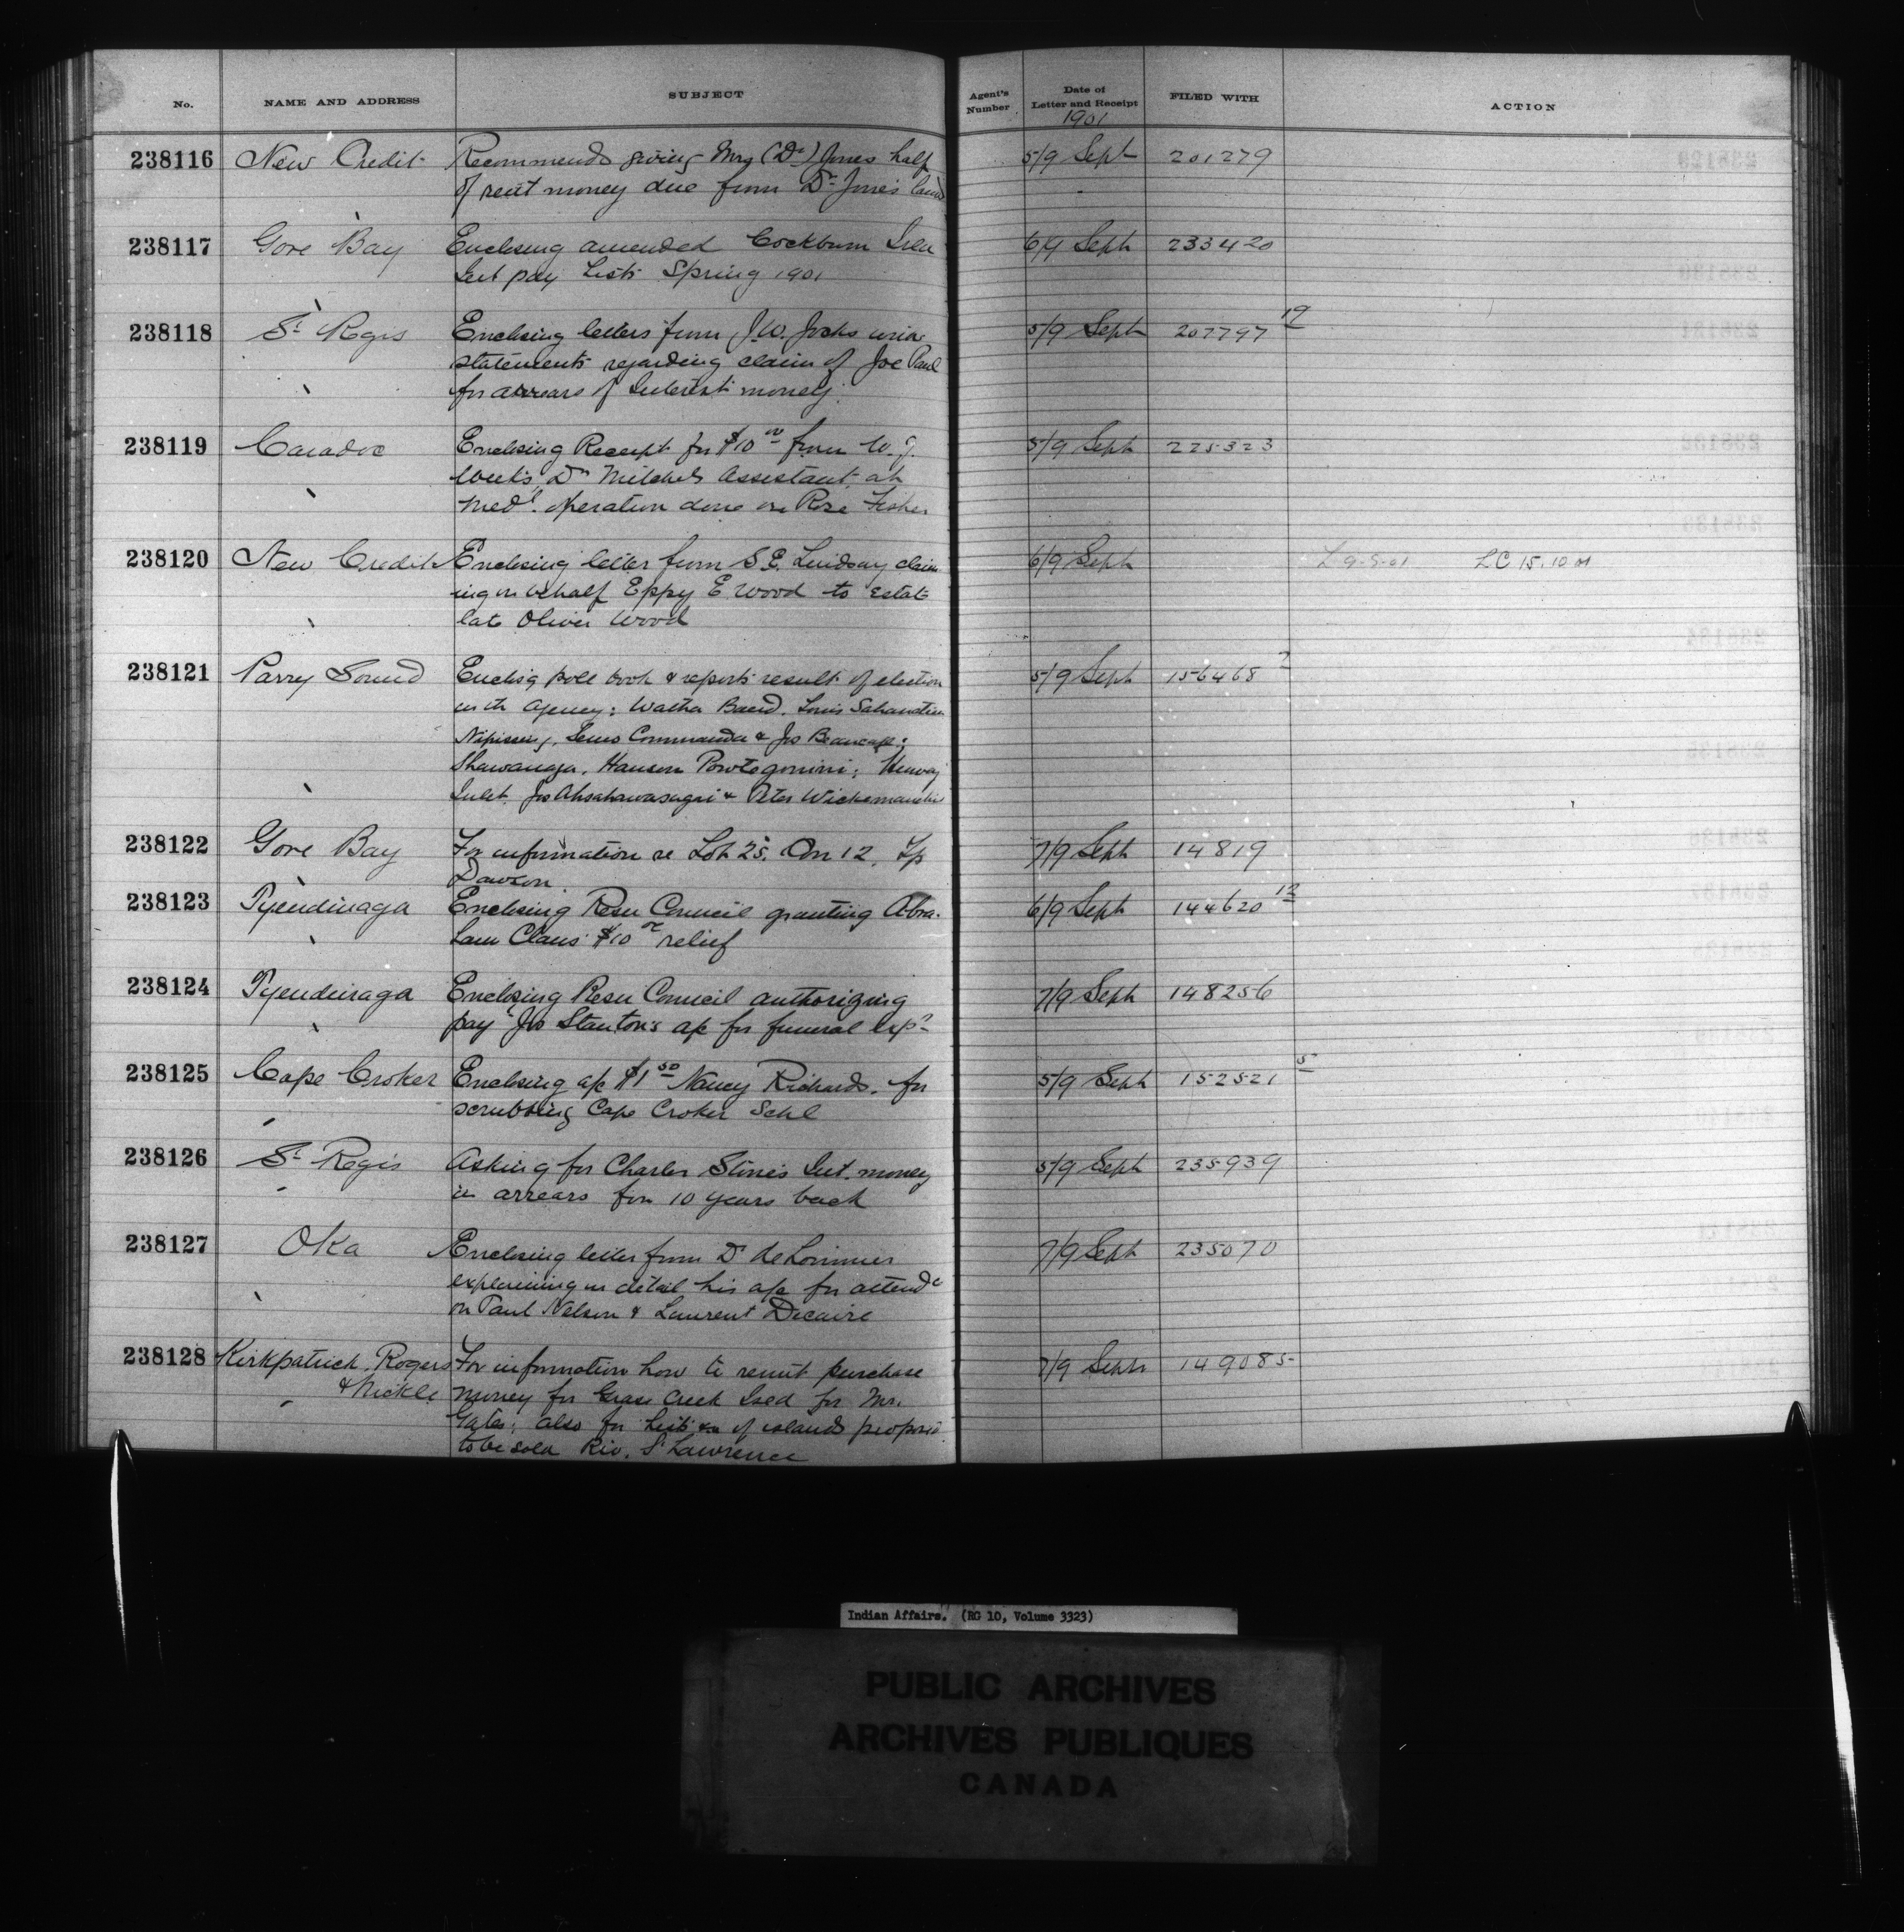 No. NAME AND ADDRESS SUBJECT Agent's Number Date of Letter and Receipt FILED WITH ACTION
1901
238116 New Credit Recommends giving Mrs (Dr.) Jones half 5/9 Sept 201279
of rent money due from Dr. Jones land
238117 Gore Bay Enclosing amended Cockburn 6/9 Sept 233420
Int pay Lists Spring 1901
238118 St Regis Enclosing letters from J.W. Jocko 5/9 Sept 207797 19
statements regarding claim of Joe Paul
for arrears of Interest money.
238119 Caradoc Enclosing Receipt for $10 00 from W. J. 5/9 Sept 225323
Weeks, Dr Mitchels Assistant at
Medl. operation done on Rose Fisher
238120 New Credit Enclosing letter from S.E. Lindsay claim 6/9 Sept L 9-9-01 LC 15.10 01
ing on behalf Eppy E Wood to Estate
late Oliver Wood
238121 Parry Sound Enclosg poll book & reports result of election 5/9 Sept 156468 2
in th agency:
Nipissing, Commanda & Jos Beaucage;
Shawanaga, Henvey
Inlet. Jos & Peter
238122 Gore Bay For information re Lot 25. Con 12. Tp 7/9 Sept 14819
Dawson.
238123 Tyendinaga Enclosing Resn Council granting Abra- 6/9 Sept 144620 12
ham Claus $10 00 relief
238124 Tyendinaga Enclosing Resn Council authorizing 7/9 Sept 148256
pay Jos Stanton's a/c for funeral exps
238125 Cape Croker Enclosing a/c $1 50 Nancy Richards. for 5/9 Sept 152521 5
scrubbing Cape Croker Schl
238126 St Regis Asking for Charles Stine's Int. money 5/9 Sept 235939
in arrears for 10 years back
238127 Oka Enclosing letter from Dr de Lorimier 7/9 Sept 235070
explaining in detail his a/c for attendce
on Paul Nelson & Laurent Decaire
238128 Kirkpatrick, Rogers For information how to remit purchase 7/9 Sept 149085
& Nickle. money for Grass Creek Isld for Mr.
Gates; also for list of islands proposed
to be sold Riv. St Lawrence
Indian Affairs. (RG 10, Volume 3323)
PUBLIC ARCHIVES
ARCHIVES PUBLIQUES
CANADA